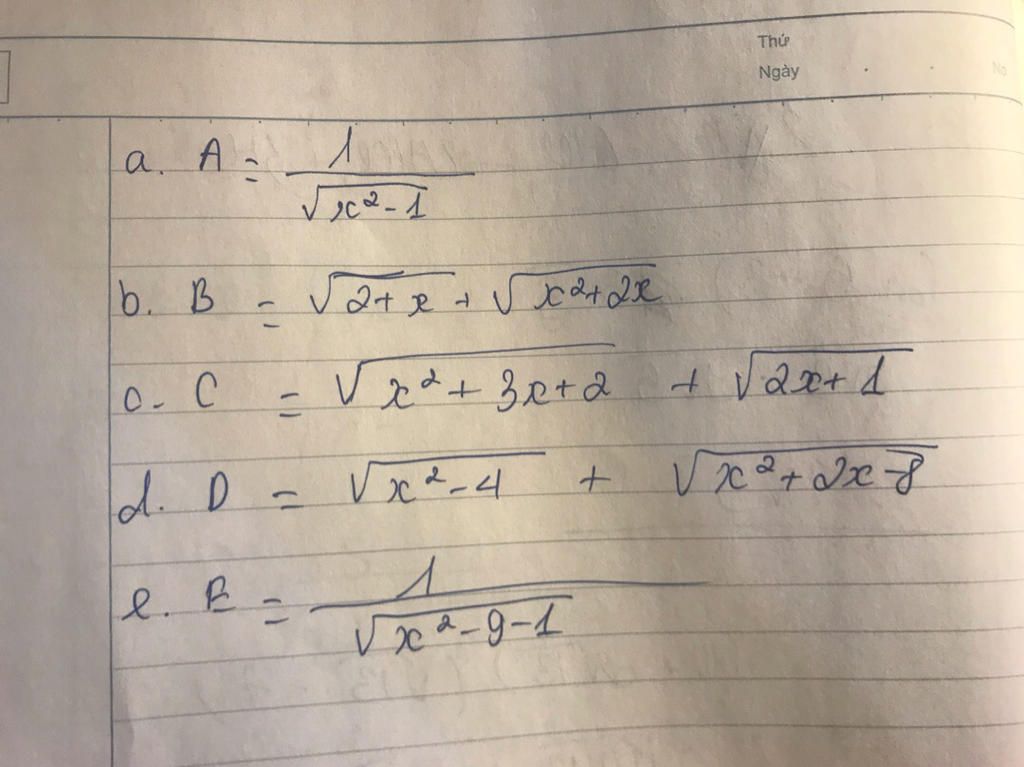 Thứ
Ngày
No
a. A = 1/√(x² - 1)
b. B = √(2 + x) + √(x² + 2x)
c. C = √(x² + 3x + 2) + √(2x + 1)
d. D = √(x² - 4) + √(x² + 2x - 8)
e. E = 1/√(x² - 9 - 1)